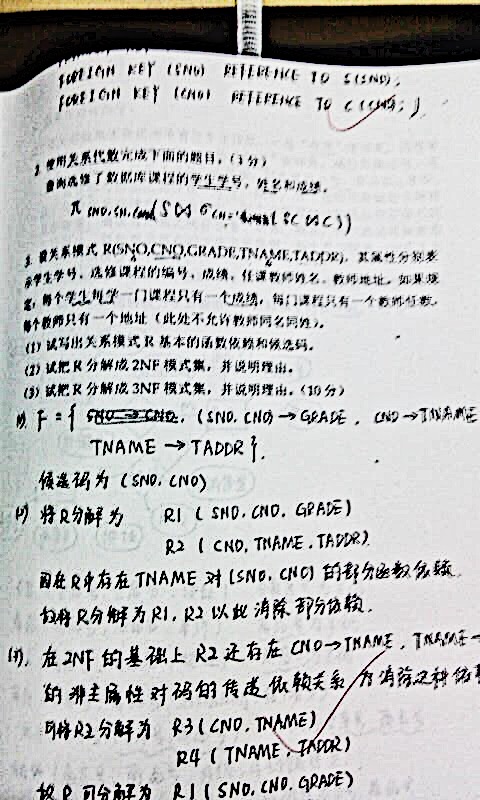 FOREIGN KEY (SNO) REFERENCE TO S(SNO),
FOREIGN KEY (CNO) REFERENCE TO C(CNO); )
2. 使用关系代数完成下面的题目,(3分)
查询选修了数据库课程的学生学号,姓名和成绩。
3. 设关系模式 R(SNO,CNO,GRADE,TNAME,TADDR),其属性分别表
示学生学号,选修课程的编号,成绩,任课教师姓名,教师地址。如果规
定,每个学生每学一门课程只有一个成绩,每门课程只有一个教师任教,
每个教师只有一个地址(此处不允许教师同名同姓)。
(1) 试写出关系模式 R 基本的函数依赖和候选码。
(2) 试把 R 分解成 2NF 模式集,并说明理由。
(3) 试把 R 分解成 3NF 模式集,并说明理由。(10分)
(1) F = { SNO→CNO, (SNO, CNO)→GRADE, CNO→TNAME
TNAME → TADDR }.
候选码为 (SNO, CNO)
(2) 将R分解为 R1 (SNO, CNO, GRADE)
R2 (CNO, TNAME, TADDR)
因在R中存在TNAME对(SNO, CNO)的部分函数依赖.
故将R分解为R1, R2以此消除部分依赖.
(3). 在2NF的基础上 R2还存在CNO→TNAME, TNAME→
的非主属性对码的传递依赖关系 为消除这种依
可将R2分解为 R3 (CNO, TNAME)
R4 (TNAME, TADDR)
故R可分解为 R1 (SNO, CNO, GRADE)